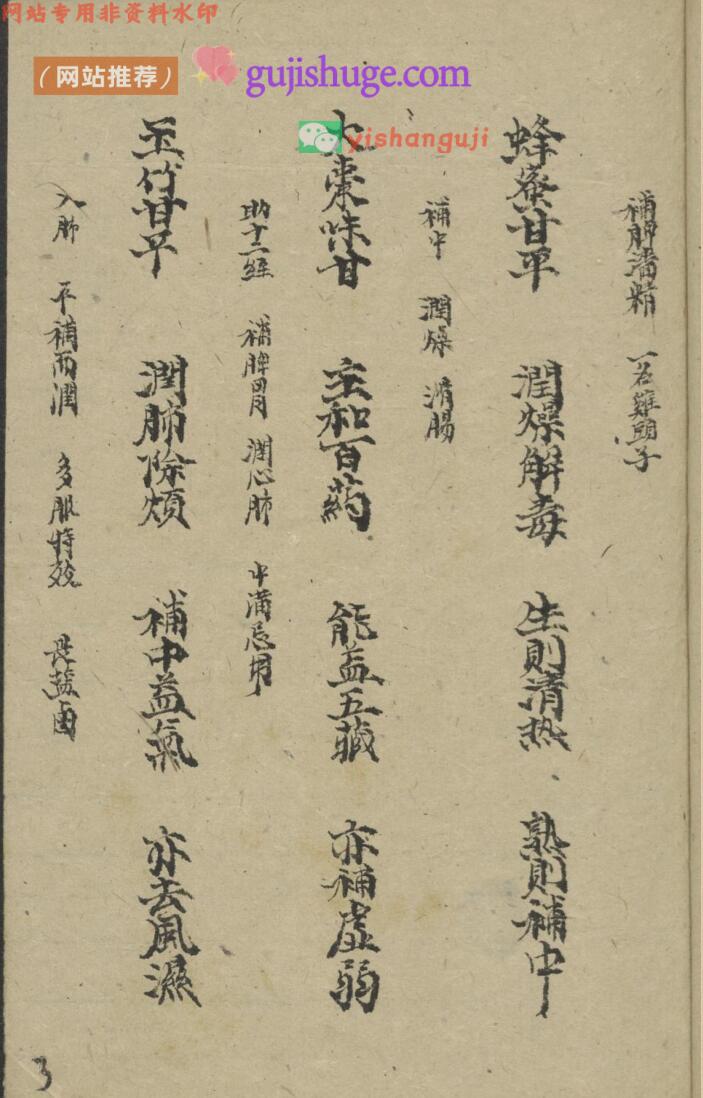 网站专用非资料水印
（网站推荐） gujishuge.com
yishanguji
補脾濇精 一名雞頭子
蜂蜜甘平 潤燥解毒 生則清热 熟則補中
補中 潤燥 滑腸
大棗味甘 主和百药 能益五臓 亦補虛弱
助十二經 補脾胃 潤心肺 中滿忌用
玉竹甘平 潤肺除煩 補中益氣 亦去風濕
入肺 平補而潤 多服特效 畏盐卤
3